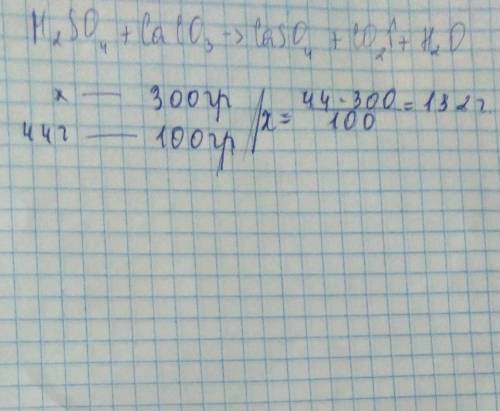 H₂SO₄ + CaCO₃ -> CaSO₄ + CO₂↑ + H₂O
x — 300гр
44г — 100гр
x = 44·300/100 = 132г.